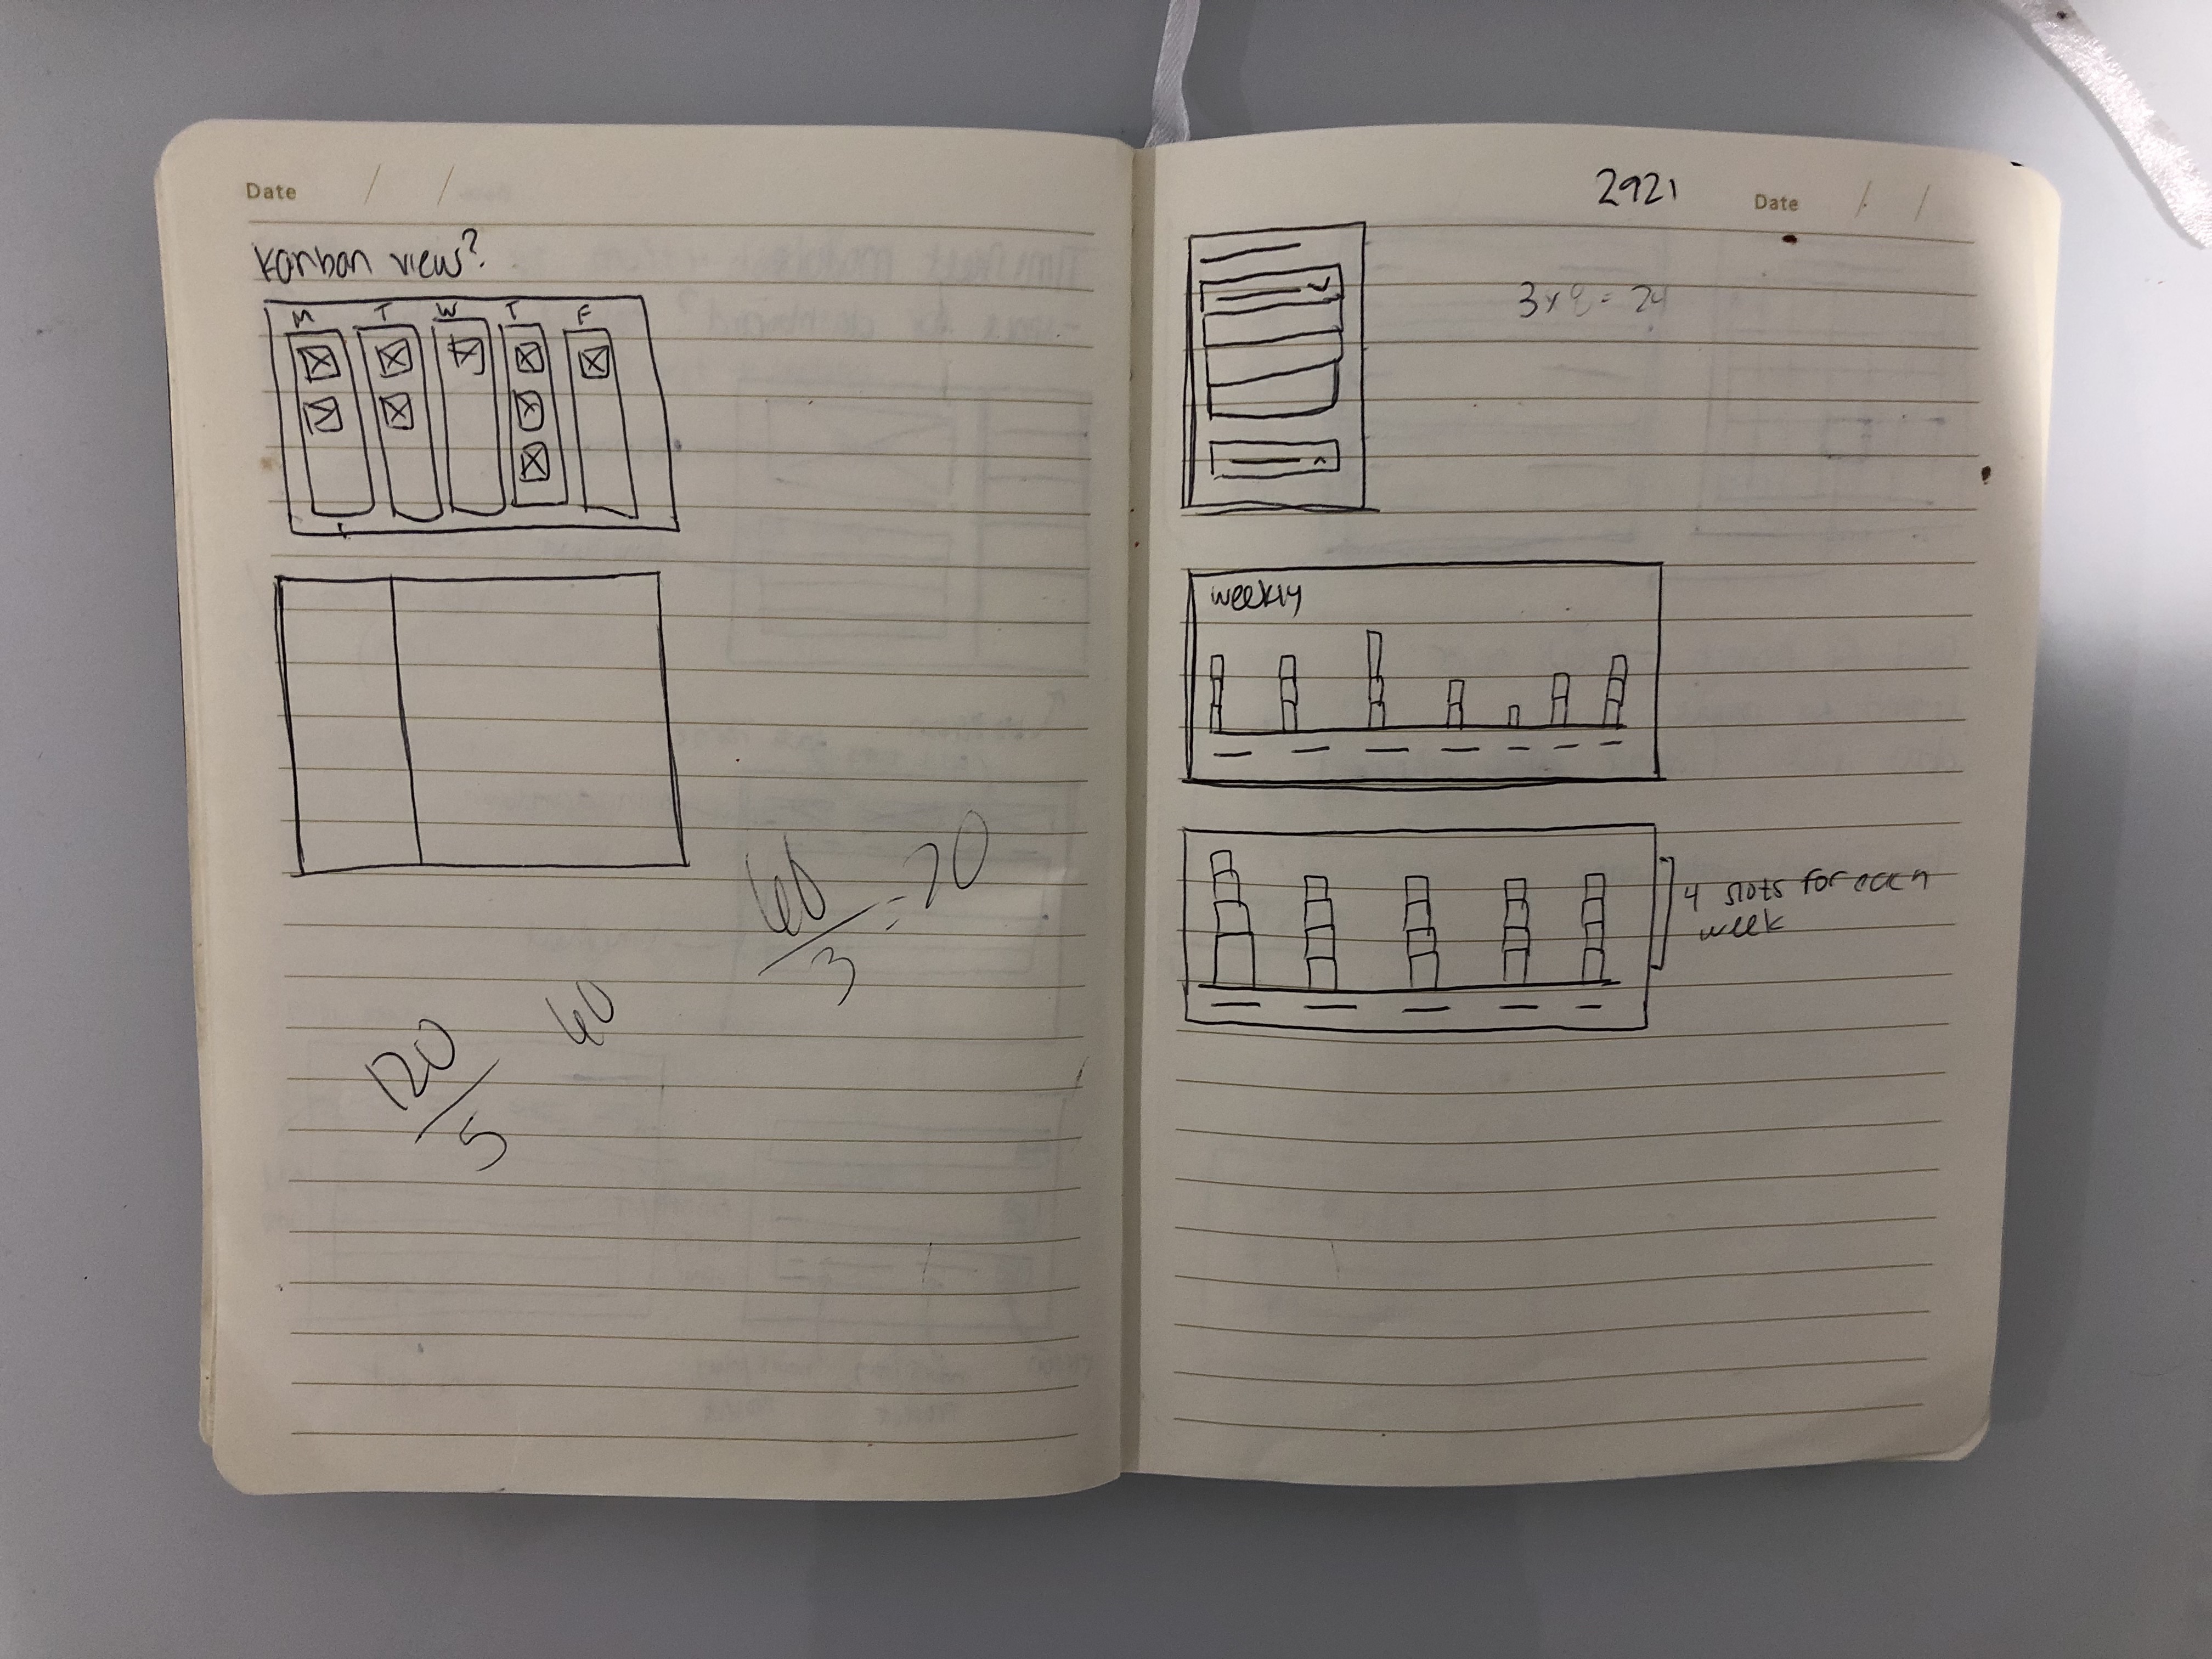 Date / /
Kanban view?
M T W T F
60/3 = 20
60
120/5
2921 Date / /
3 x 8 = 24
weekly
4 slots for each
week